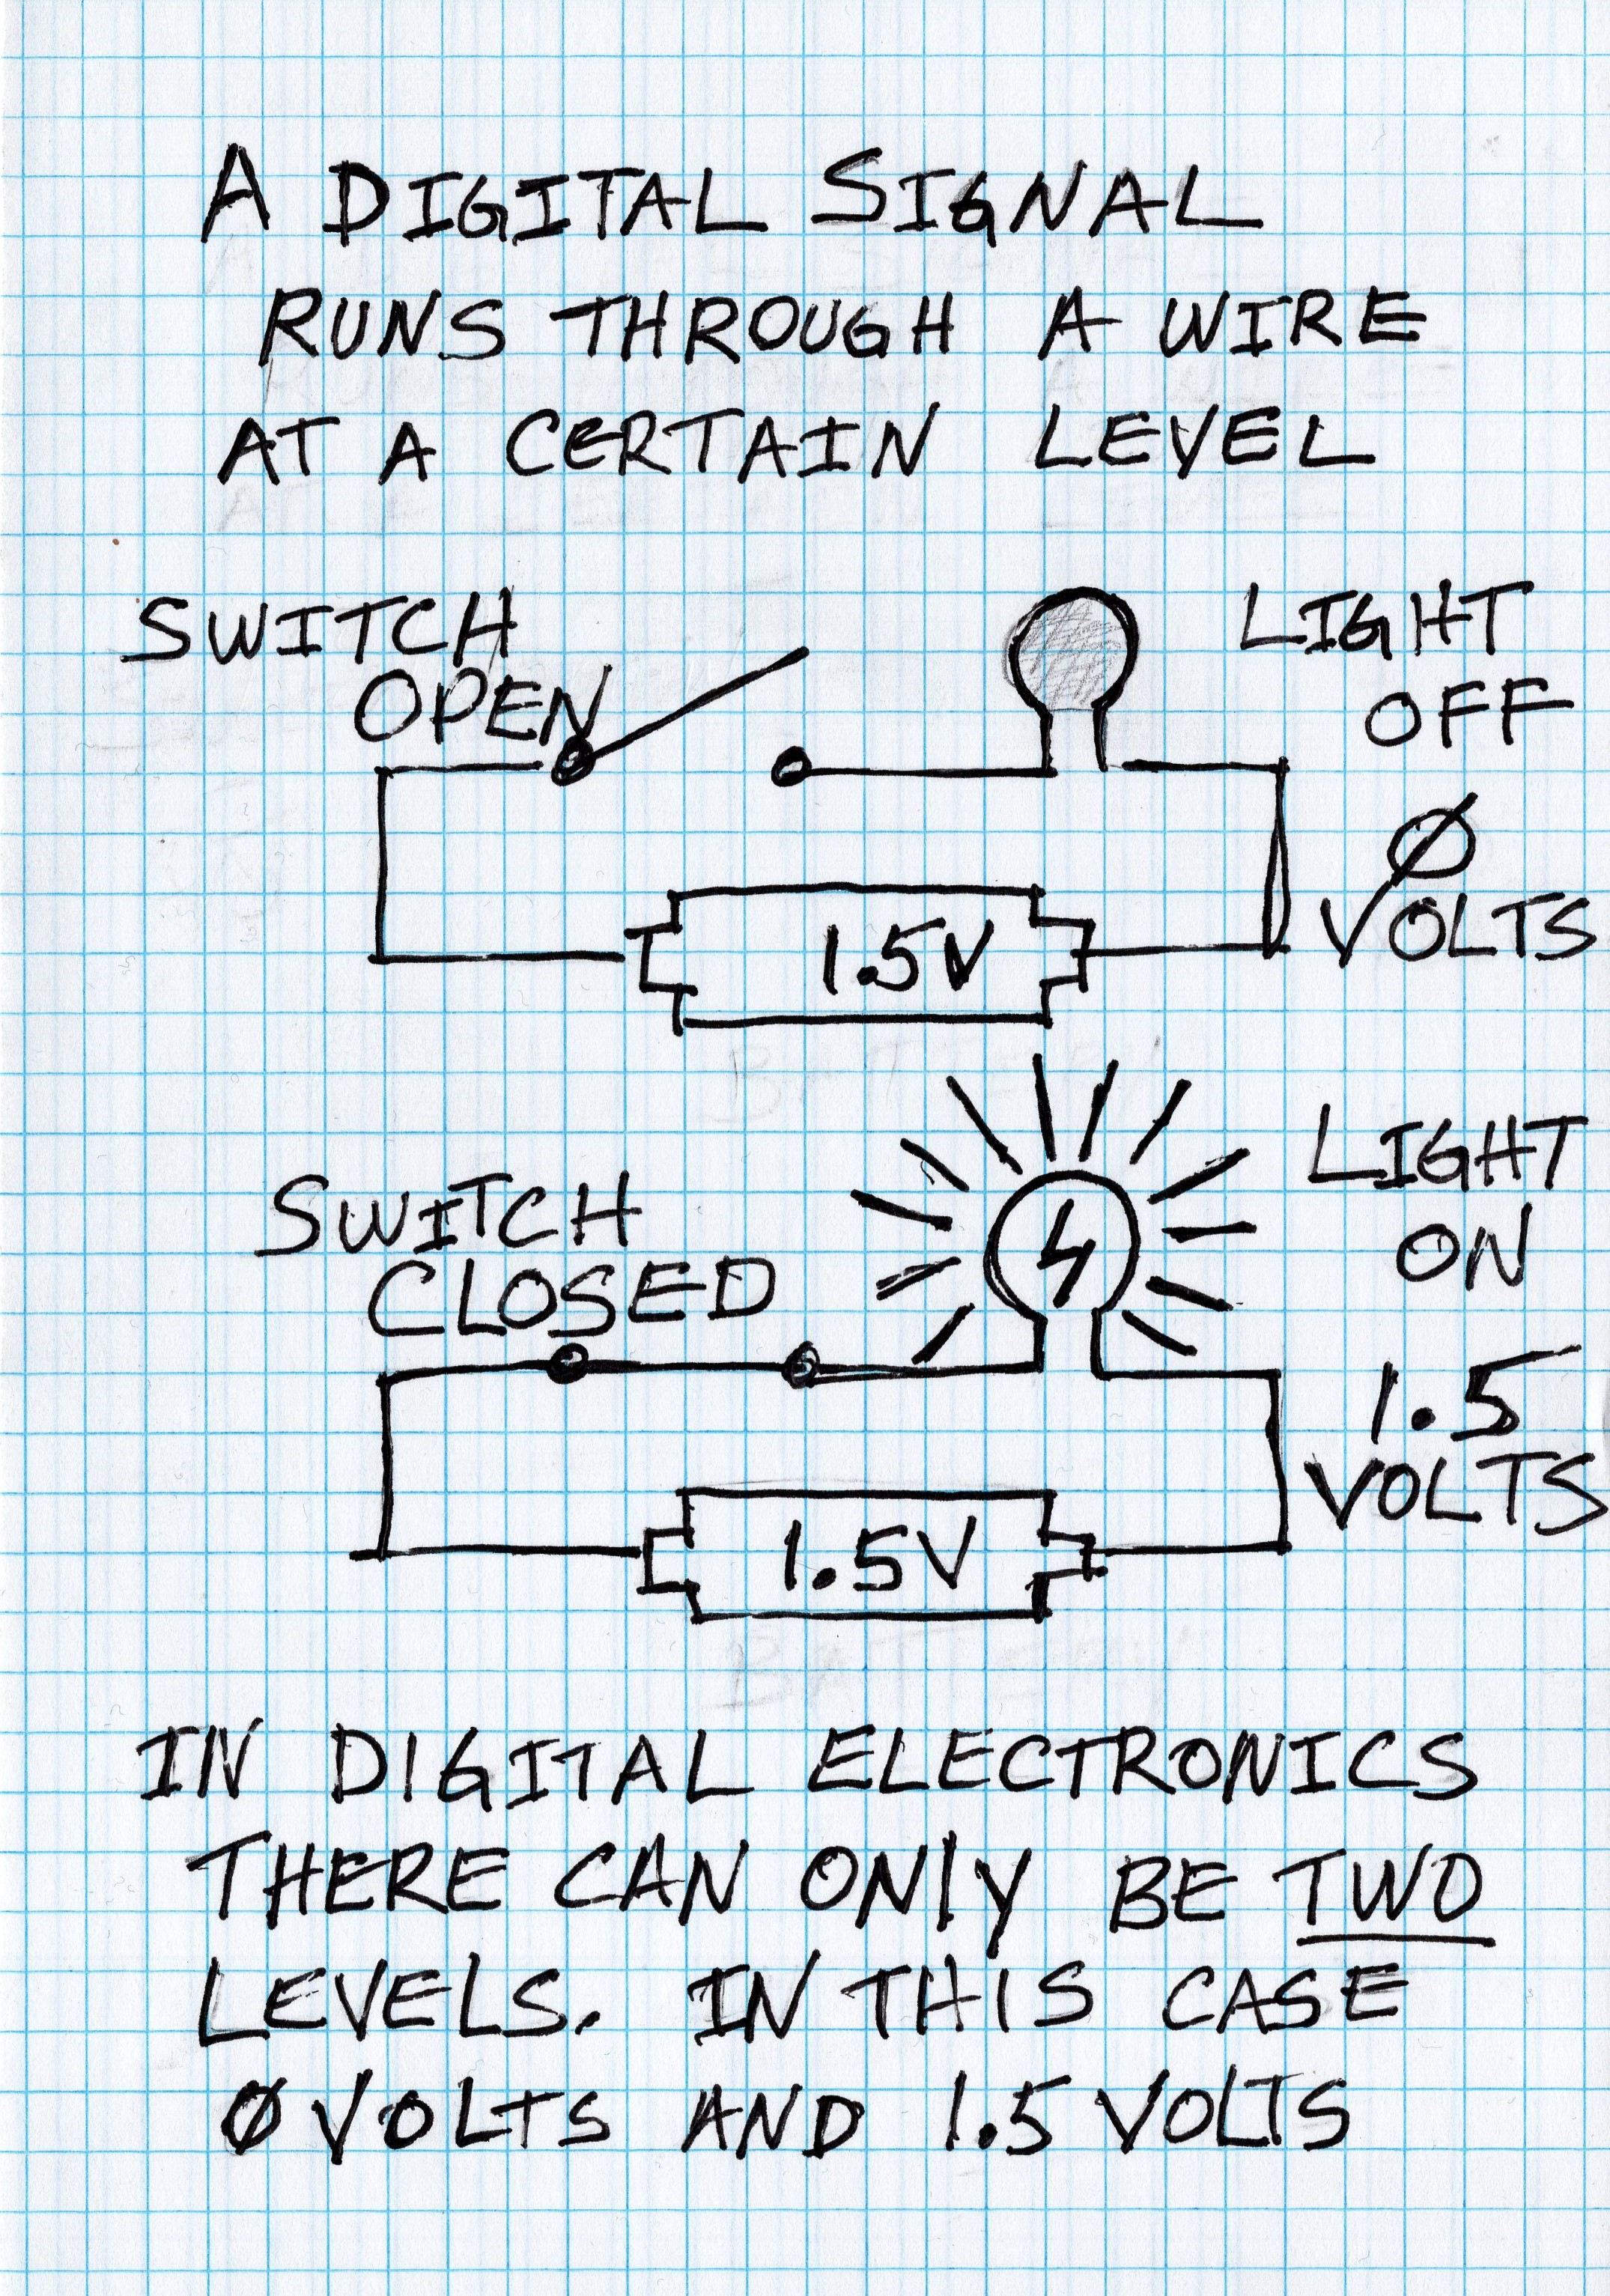 A DIGITAL SIGNAL
RUNS THROUGH A WIRE
AT A CERTAIN LEVEL
SWITCH
OPEN
LIGHT
OFF
Ø
VOLTS
1.5V
SWITCH
CLOSED
LIGHT
ON
1.5
VOLTS
1.5V
IN DIGITAL ELECTRONICS
THERE CAN ONLY BE TWO
LEVELS. IN THIS CASE
Ø VOLTS AND 1.5 VOLTS